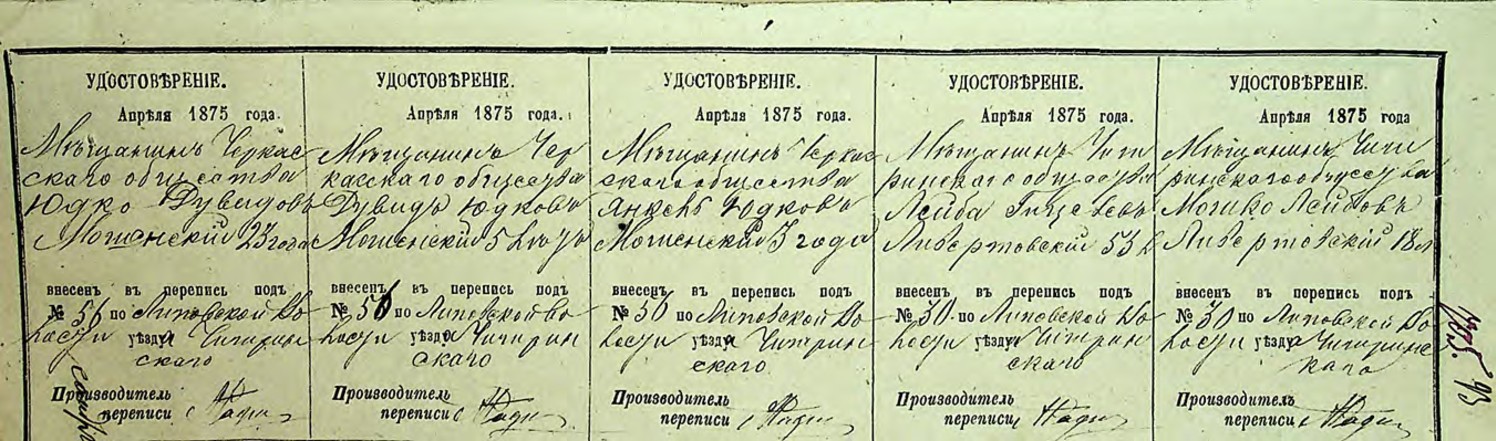 УДОСТОВѢРЕНІЕ.
Апрѣля 1875 года.
Мѣщанинъ Черкас
скаго общества
Юдко Дувидовъ
23 года
внесенъ въ перепись подъ
№ по Липовской Во
лости уѣзда Чигирин
скаго
Производитель
переписи
УДОСТОВѢРЕНІЕ.
Апрѣля 1875 года.
Мѣщанинъ Чер
касскаго общества
Дувидъ Юдковъ
5 лѣтъ
внесенъ въ перепись подъ
№ по Липовской во
лости уѣзда Чигирин
скаго
Производитель
переписи
УДОСТОВѢРЕНІЕ.
Апрѣля 1875 года.
Мѣщанинъ Черкас
скаго общества
Янкель Юдковъ
3 года
внесенъ въ перепись подъ
№ по Липовской Во
лости уѣзда Чигирин
скаго
Производитель
переписи
УДОСТОВѢРЕНІЕ.
Апрѣля 1875 года.
Мѣщанинъ Чиги
ринскаго общества
Лейба
Либертовскій 53 л
внесенъ въ перепись подъ
№ 30 по Липовской Во
лости уѣзда Чигирин
скаго
Производитель
переписи
УДОСТОВѢРЕНІЕ.
Апрѣля 1875 года
Мѣщанинъ Чиги
ринскаго общества
Мошко Лейбовъ
Либертовскій 18 л
внесенъ въ перепись подъ
№ 30 по Липовской Во
лости уѣзда Чигиринс
каго
Производитель
переписи